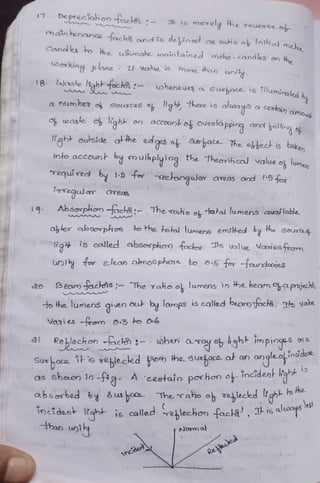 17. Depreciation factor :- It is merely the reverse of
maintenance factor and is defined as ratio of initial metre
candles to the ultimate maintained metre-candles on the
working plane. It value is more than unity.
18. Waste light factor :- whenever a surface is illuminated by
a number of sources of light, there is always a certain amount
of waste of light on account of overlapping and falling of
light outside of the edges of surface. The effect is taken
into account by multiplying the theoritical value of lumens
required by 1.2 for rectangular areas and 1.5 for
irregular areas
19. Absorption factor :- The ratio of total lumens available
after absorption to the total lumens emitted by the source of
light is called absorption factor Its value varies from
unity for clean atmosphere to 0.5 for foundories
20 Beam factors :- The ratio of lumens in the beam of a projector
to the lumens given out by lamps is called beam factor. Its value
varies from 0.3 to 0.6
21 Reflection factor :- when a ray of light impinges on a
surface it is reflected from the surface at an angle of incidence
as shown in fig. A certain portion of incident light is
absorbed by surface. The ratio of reflected light to the
incident light is called 'reflection factor', It is always less
than unity
Normal
incident
Reflected